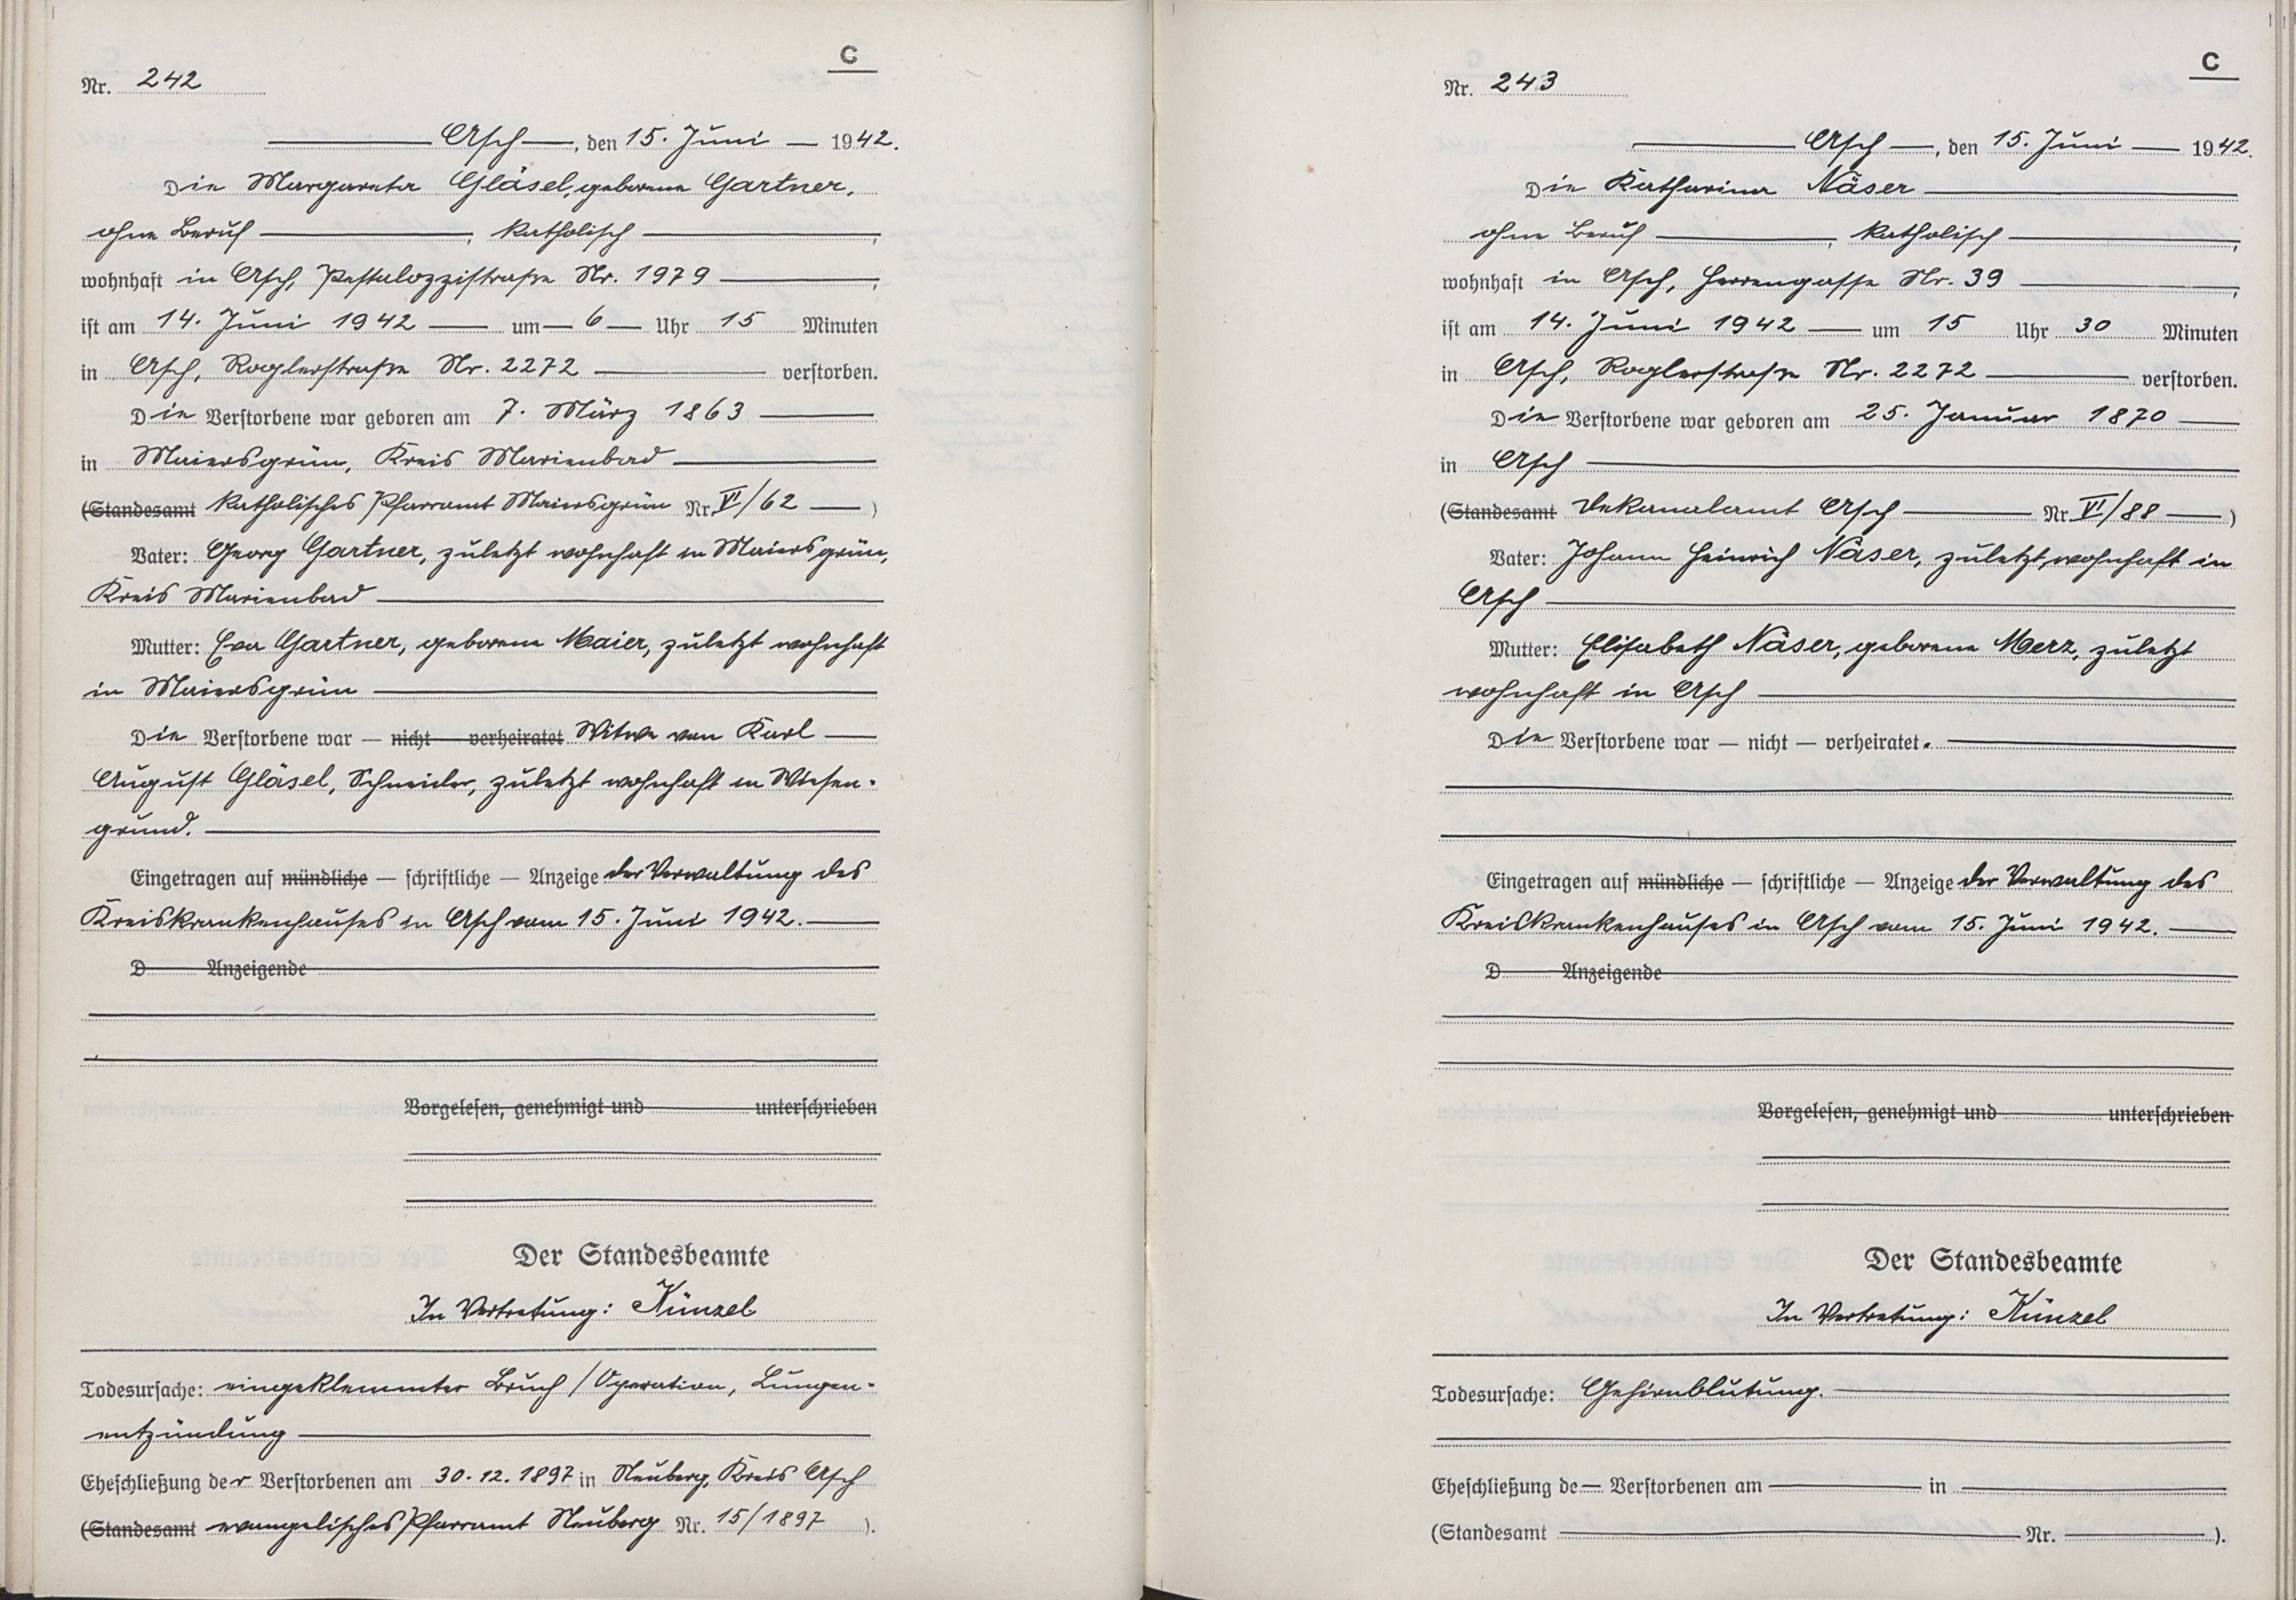 C
Nr. 242
Asch, den 15. Juni 1942.
Die Margareta Gläsel, geborene Gartner,
ohne Beruf, katholisch,
wohnhaft in Asch, Pestalozzistraße Nr. 1979,
ist am 14. Juni 1942 um 6 Uhr 15 Minuten
in Asch, Roglerstraße Nr. 2272 verstorben.
Die Verstorbene war geboren am 7. März 1863
in Maiersgrün, Kreis Marienbad
(Standesamt katholisches Pfarramt Maiersgrün Nr. VI/62)
Vater: Georg Gartner, zuletzt wohnhaft in Maiersgrün,
Kreis Marienbad
Mutter: Eva Gartner, geborene Maier, zuletzt wohnhaft
in Maiersgrün
Die Verstorbene war — nicht — verheiratet Witwe von Karl
August Gläsel, Schneider, zuletzt wohnhaft in Wiesen-
grund.
Eingetragen auf mündliche — schriftliche — Anzeige der Verwaltung des
Kreiskrankenhauses in Asch vom 15. Juni 1942.
D Anzeigende
Vorgelesen, genehmigt und unterschrieben
Der Standesbeamte
In Vertretung: Künzel
Todesursache: eingeklemmter Bruch / Operation, Lungen-
entzündung
Eheschließung der Verstorbenen am 30.12.1897 in Neuberg, Kreis Asch
(Standesamt evangelisches Pfarramt Neuberg Nr. 15/1897).
C
Nr. 243
Asch, den 15. Juni 1942.
Die Katharina Näser
ohne Beruf, katholisch,
wohnhaft in Asch, Herrengasse Nr. 39,
ist am 14. Juni 1942 um 15 Uhr 30 Minuten
in Asch, Roglerstraße Nr. 2272 verstorben.
Die Verstorbene war geboren am 25. Januar 1870
in Asch
(Standesamt Dekanalamt Asch Nr. VI/88)
Vater: Johann Heinrich Näser, zuletzt wohnhaft in
Asch
Mutter: Elisabeth Näser, geborene Merz, zuletzt
wohnhaft in Asch
Die Verstorbene war — nicht — verheiratet.
Eingetragen auf mündliche — schriftliche — Anzeige der Verwaltung des
Kreiskrankenhauses in Asch vom 15. Juni 1942.
D Anzeigende
Vorgelesen, genehmigt und unterschrieben
Der Standesbeamte
In Vertretung: Künzel
Todesursache: Gehirnblutung.
Eheschließung de Verstorbenen am in
(Standesamt Nr. ).